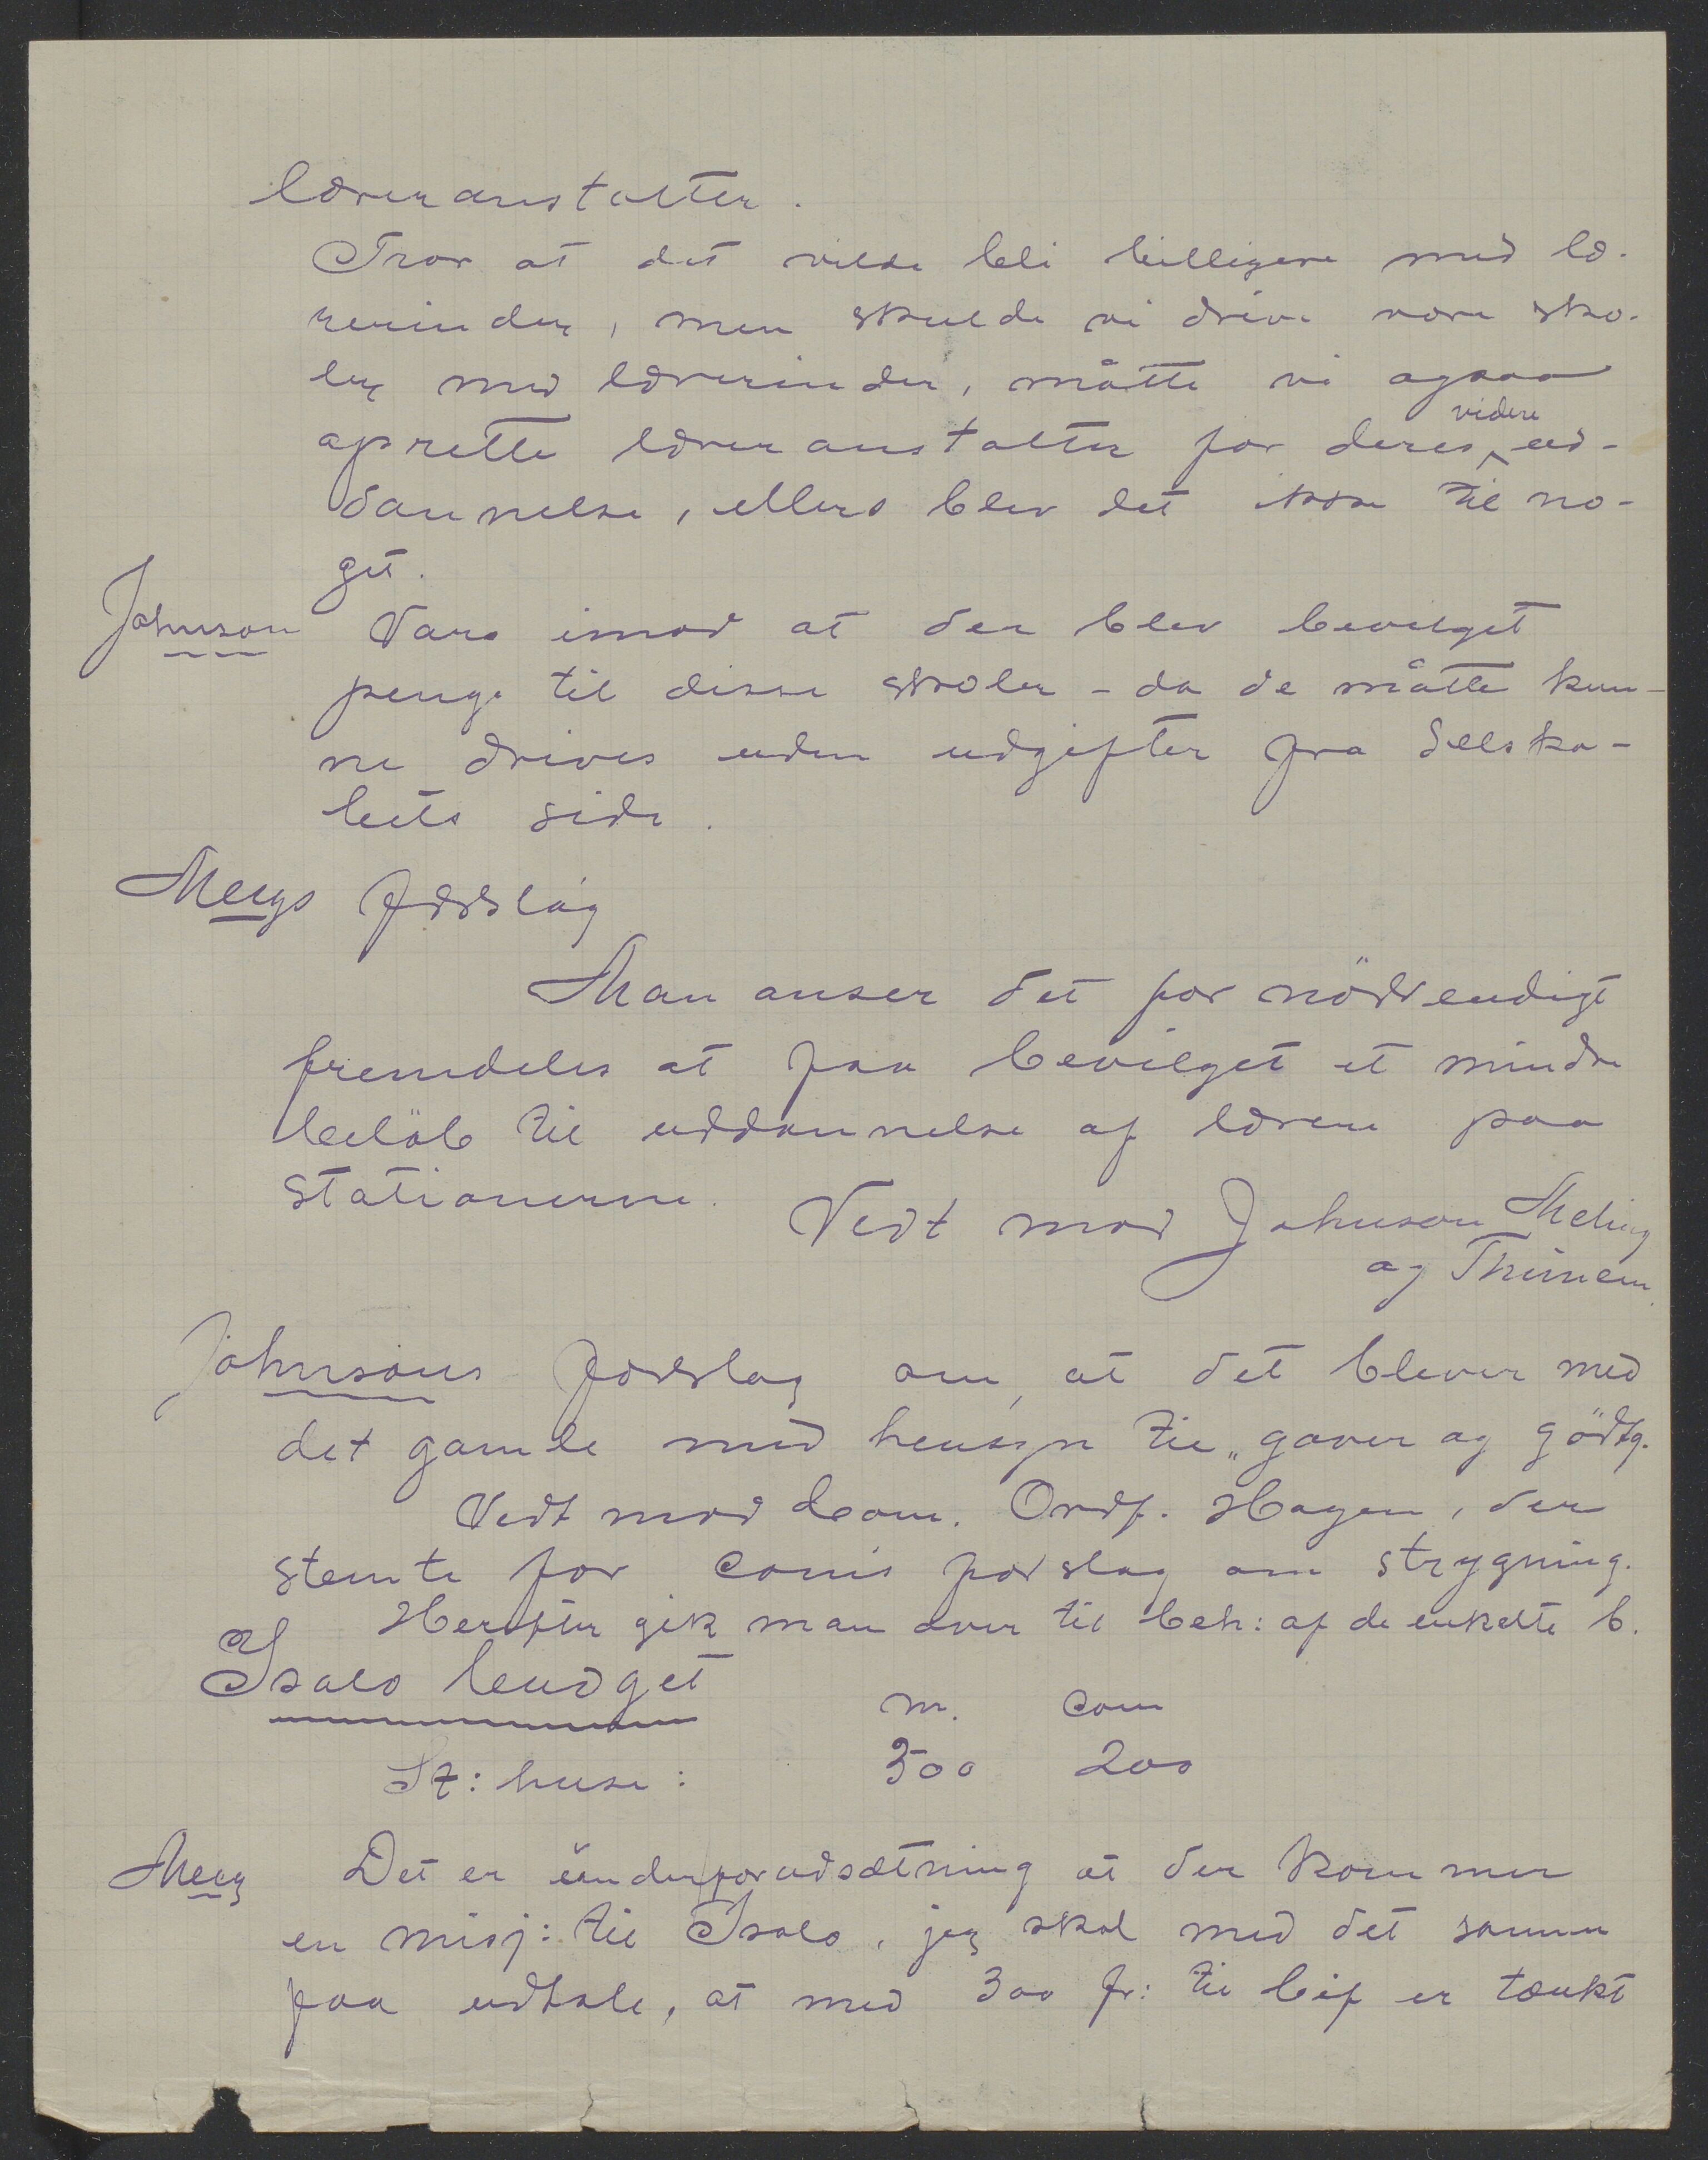 læreranstalter.
Tror at det vilde bli billigere med læ-
rerinder, men skulde vi drive vore sko-
ler med lærerinder, måtte vi ogsaa
videre
oprette læreranstalter for deres ud-
dannelse, ellers blev det ikke til no-
get.
Johnson Vare imod at der blev bevilget
penge til disse skoler - da de måtte kun-
ne drives uden udgifter fra Selska-
bets side.
Meegs forslag
Man anser det for nödvendigt
fremdeles at faa bevilget et mindre
belöb til uddannelse af lærere paa
stationerne. Vedt mod Johnson Meling
og Thunem
Johnsons forslag om, at det blever med
det gamle med hensyn til „gaver og gödtg.
Vedt mod Com. Ordf. Hagen, der
stemte for com's forslag om strygning.
Herefter gik man over til beh: af de enkelte b.
Isalo budget
m. Com
St: huse: 300 200
Meeg Det er under forudsætning at der kommer
en misj: til Isalo, jeg skal med det samme
faa udtale, at med 300 fr: til bif er tænkt